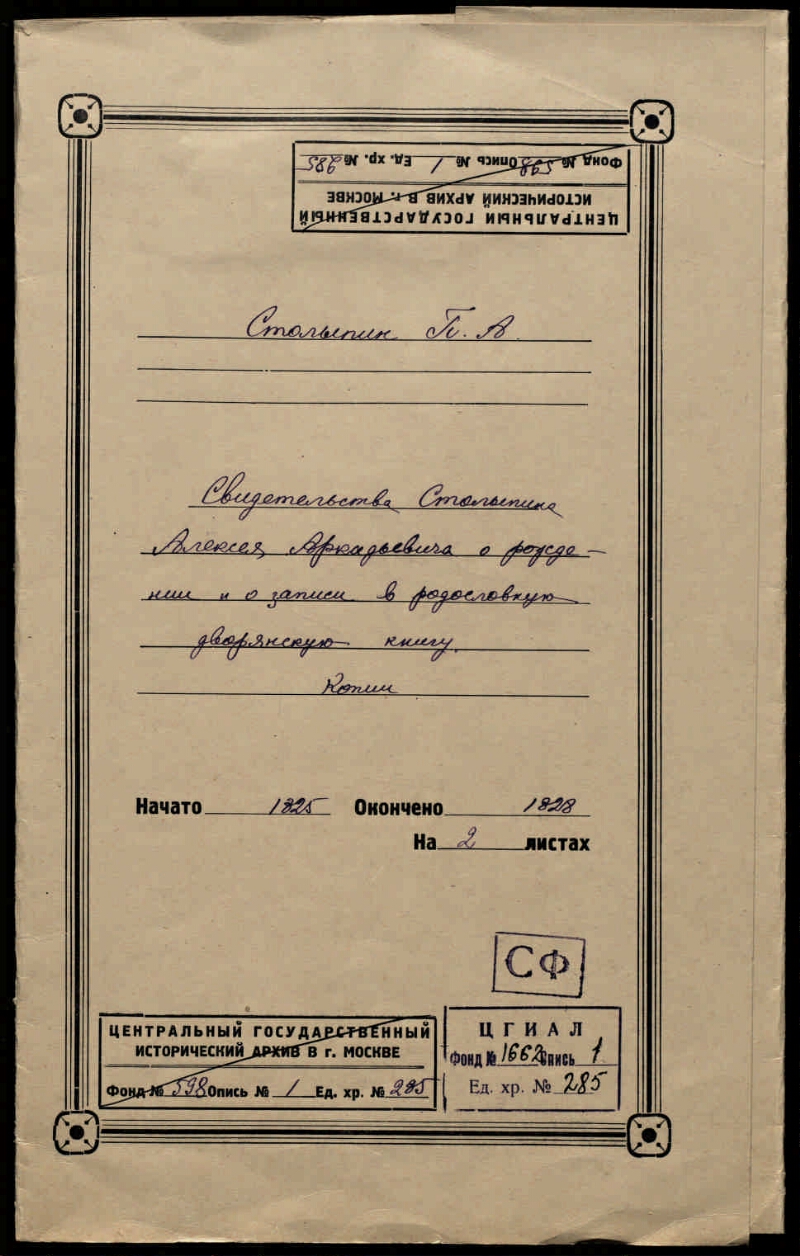 ЦЕНТРАЛЬНЫЙ ГОСУДАРСТВЕННЫЙ
ИСТОРИЧЕСКИЙ АРХИВ В г. МОСКВЕ
Фонд № 598 Опись № 1 Ед. хр. № 285
Столыпин П. А
Свидетельства Столыпина
Алексея Аркадьевича о рожде-
нии и о записи в родословную
дворянскую книгу
Копии
Начато 1825 Окончено 1828
На 2 листах
СФ
ЦЕНТРАЛЬНЫЙ ГОСУДАРСТВЕННЫЙ
ИСТОРИЧЕСКИЙ АРХИВ В г. МОСКВЕ
Фонд № 598 Опись № 1 Ед. хр. № 285
ЦГИАЛ
Фонд № 1662 Опись 1
Ед. хр. № 285